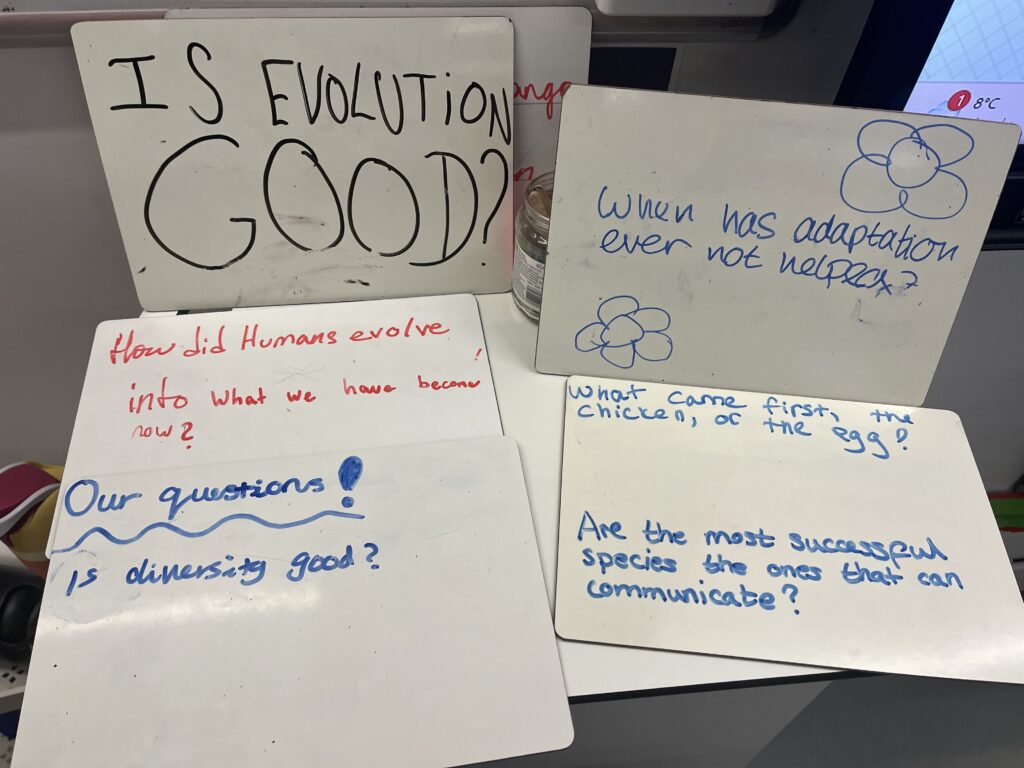 IS EVOLUTION
GOOD?
When has adaptation
ever not helped?
How did Humans evolve
into what we have become
now?
What came first, the
chicken, or the egg?
Our questions!
is diversity good?
Are the most successful
species the ones that can
communicate?
1 8°C